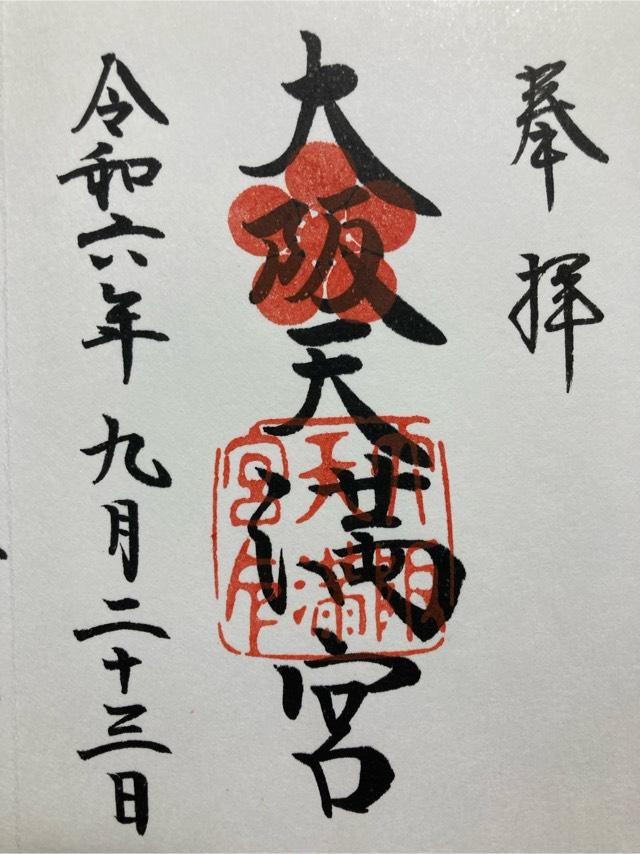 奉拝
大阪天満宮
大阪天満宮印
令和六年九月二十三日